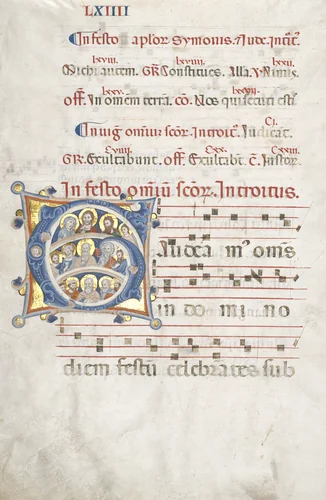 LXIIII
In festo aplor Symonis. Jude. Introit.
lxviii. lxviiii. lxxii.
Michi autem. GR. Constitues. Alla. V. Nimis.
lxxv.
Off. In omem terra. co. Nos qui secuti esti
CI.
In uig omiu scor. Introit. Judicant.
CVIII. CXX. CXXIII.
GR. Exultabunt. off. Exultabt. c. Justor
In festo omiu scor. Introitus.
Gaudea m' oms
in do mi no
diem festu celebrates sub